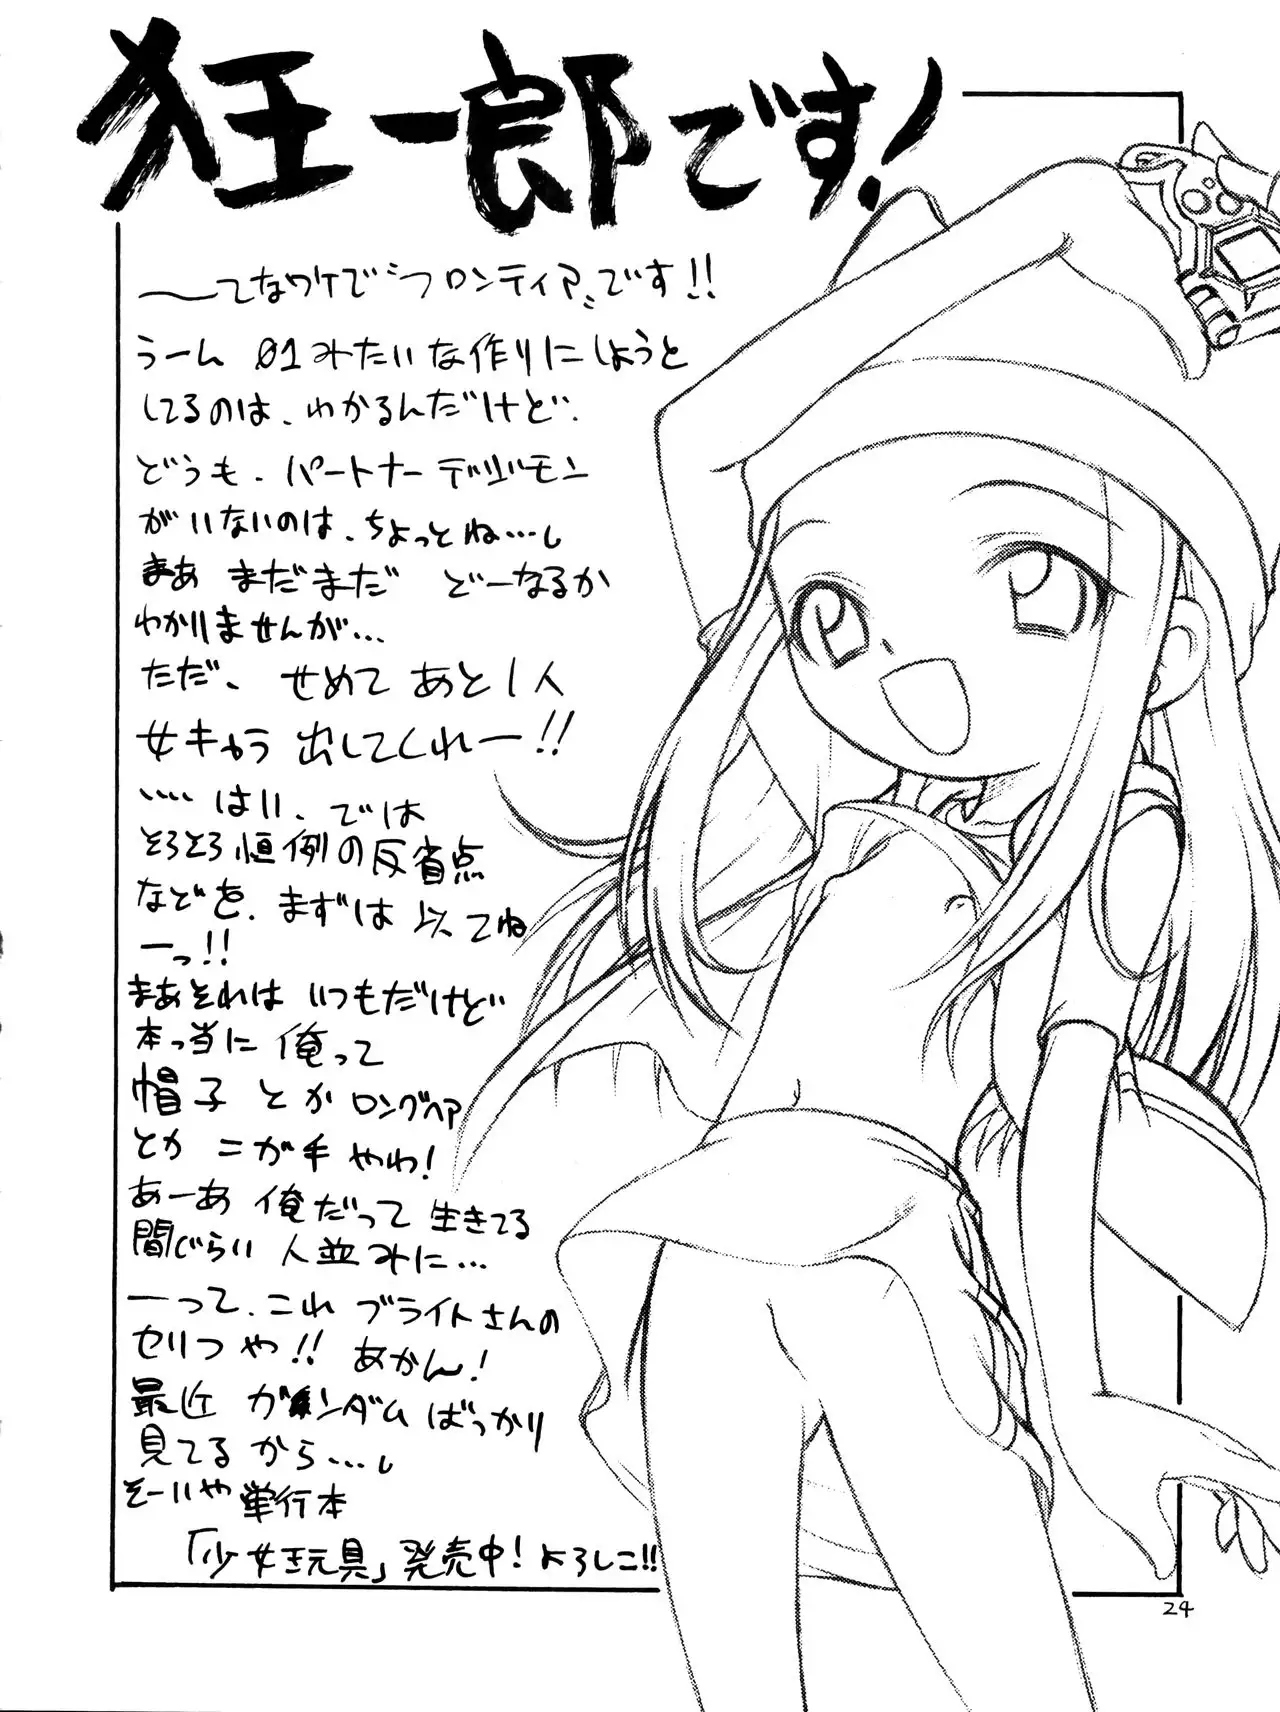 狂一郎です!
〜〜てなワケで“フロンティア”です!!
うーん 01みたいな作りにしようと
してるのは、わかるんだけど、
どうも、パートナーデジモン
がいないのは、ちょっとね…。
まあ まだまだ どーなるか
わかりませんが…
ただ、せめてあと1人
女キャラ 出してくれー!!
…… はい、では
そろそろ恒例の反省点
などを、まずは 以てね
ーっ!!
まあそれは いつもだけど
本っ当に 俺って
帽子 とか ロングヘア
とか ニガ手 やわ!
あーあ 俺だって 生きてる
間じらい 人並みに…
ーって、これ ブライトさんの
セリフや!! あかん!
最近 ガンダムばっかり
見てるから…。
そーいや 単行本
「少女玩具」発売中! よろしこ!!
24